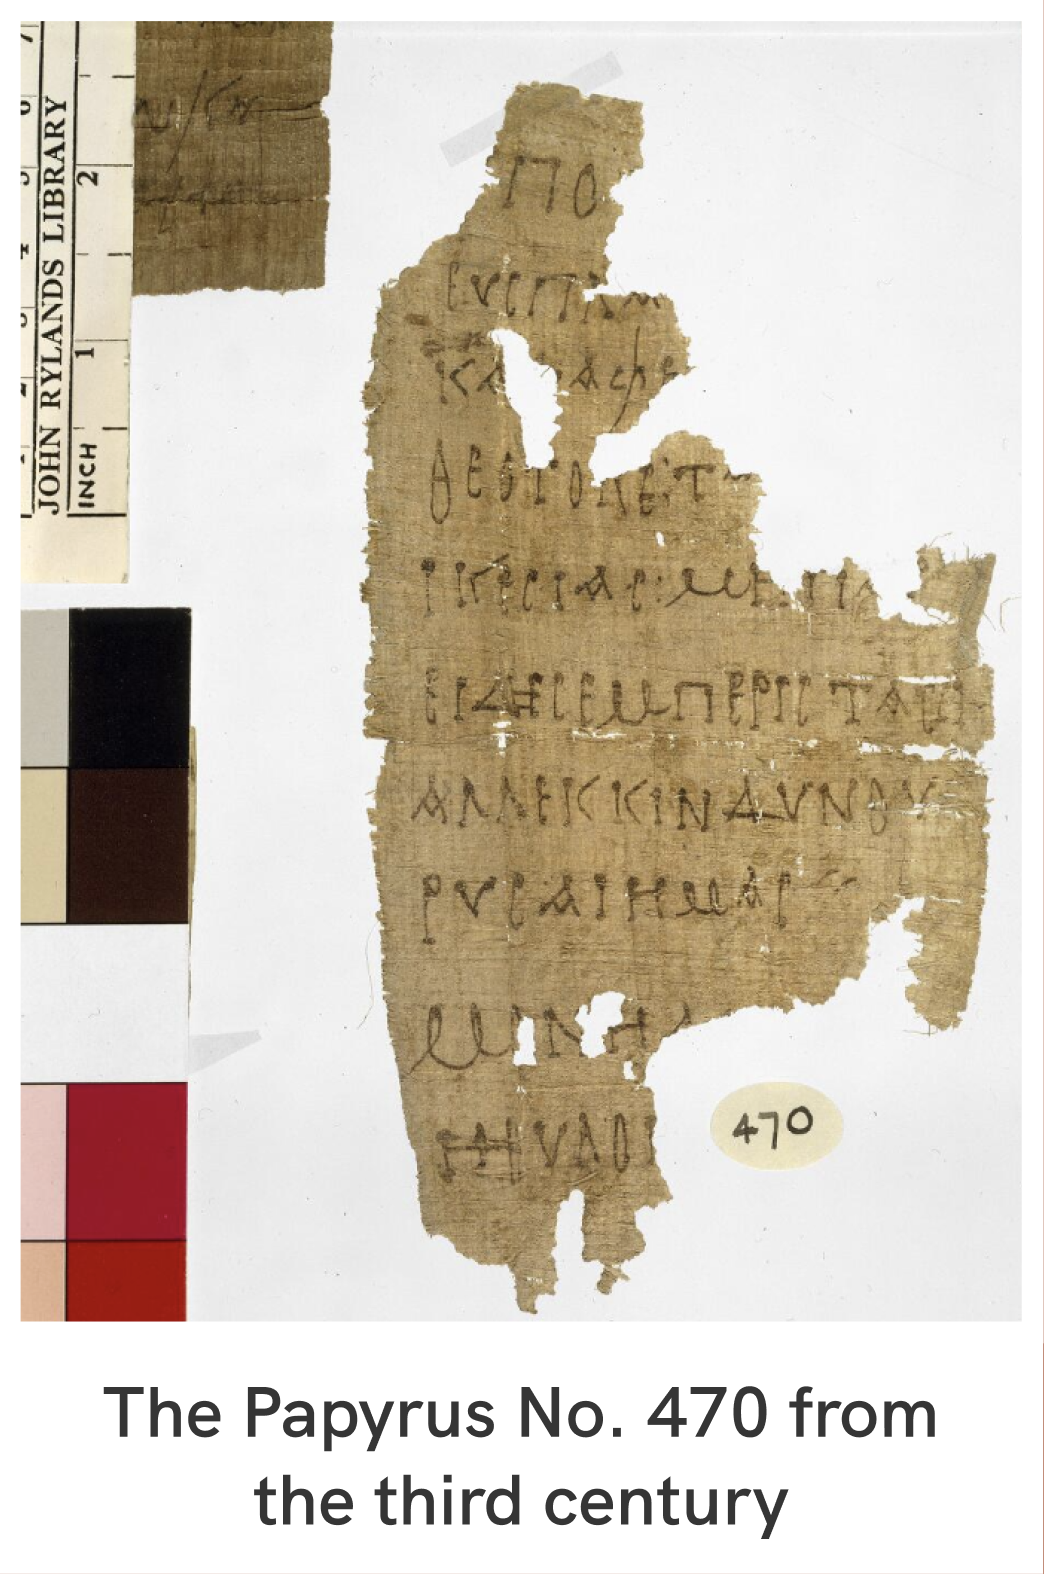 JOHN RYLANDS LIBRARY
INCH 1 2
ΠΟ
ΕΥCΠΑ
ΚΑ ΑΦΥ
ΘΕΟΤΟΚΕ·Τ
ΙΚΕCΙΑC·ΜΗΠΑ
ΕΙΔΗCΕΜΠΕΡΙCΤΑCΕΙ
ΑΛΛΕΚΚΙΝΔΥΝΟΥ
ΡΥCΑΙΗΜΑC
ΜΟΝΗ
470
The Papyrus No. 470 from
the third century